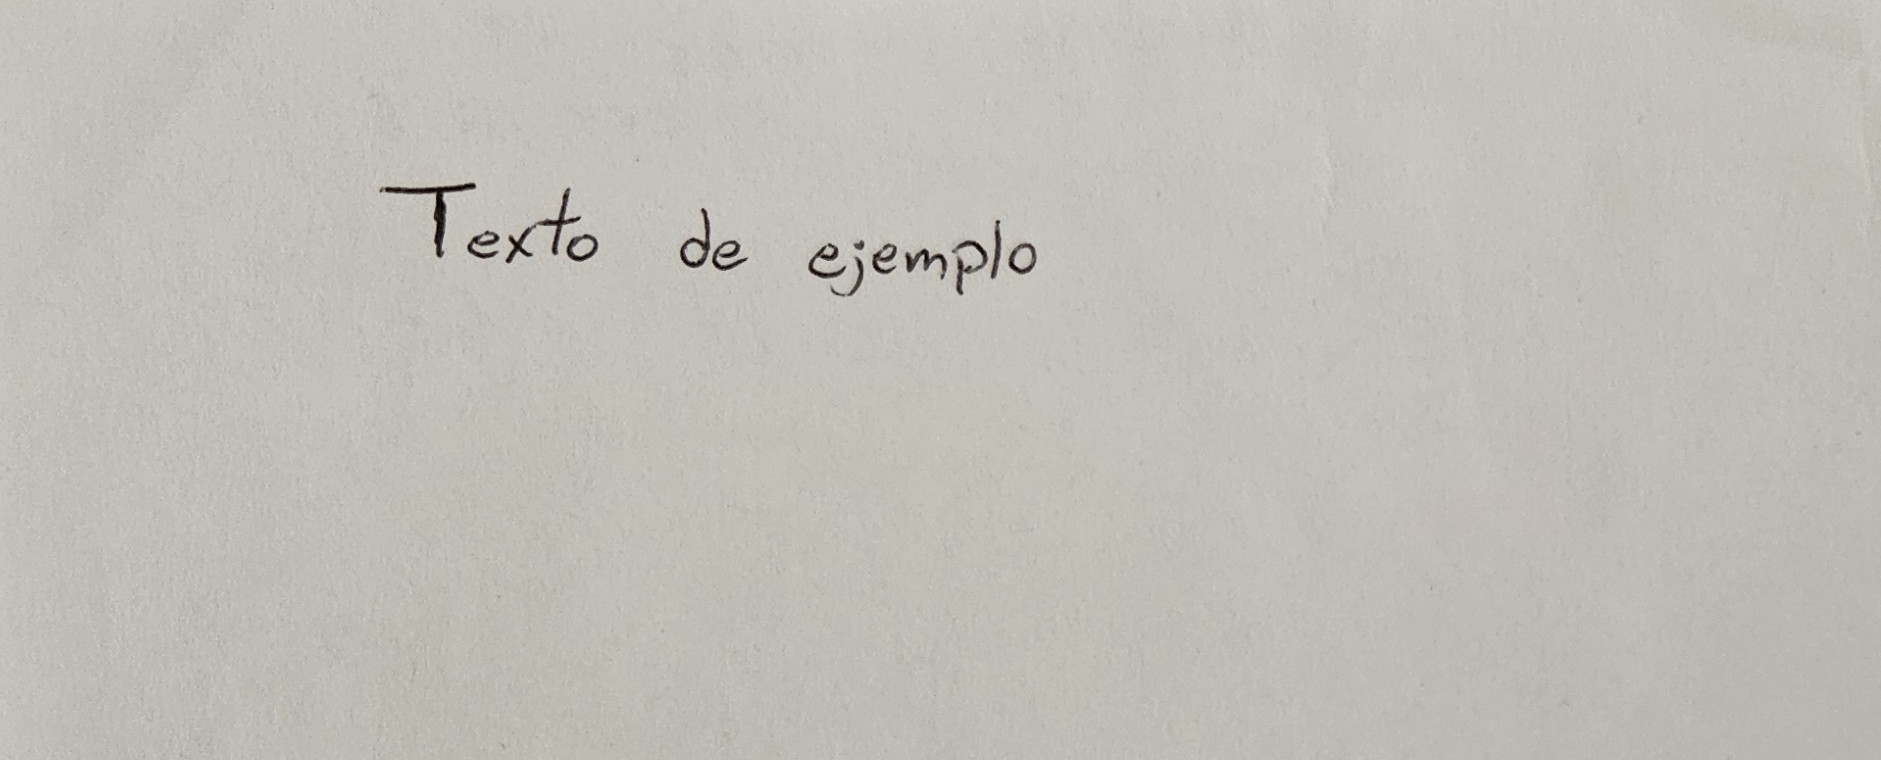 Texto de ejemplo